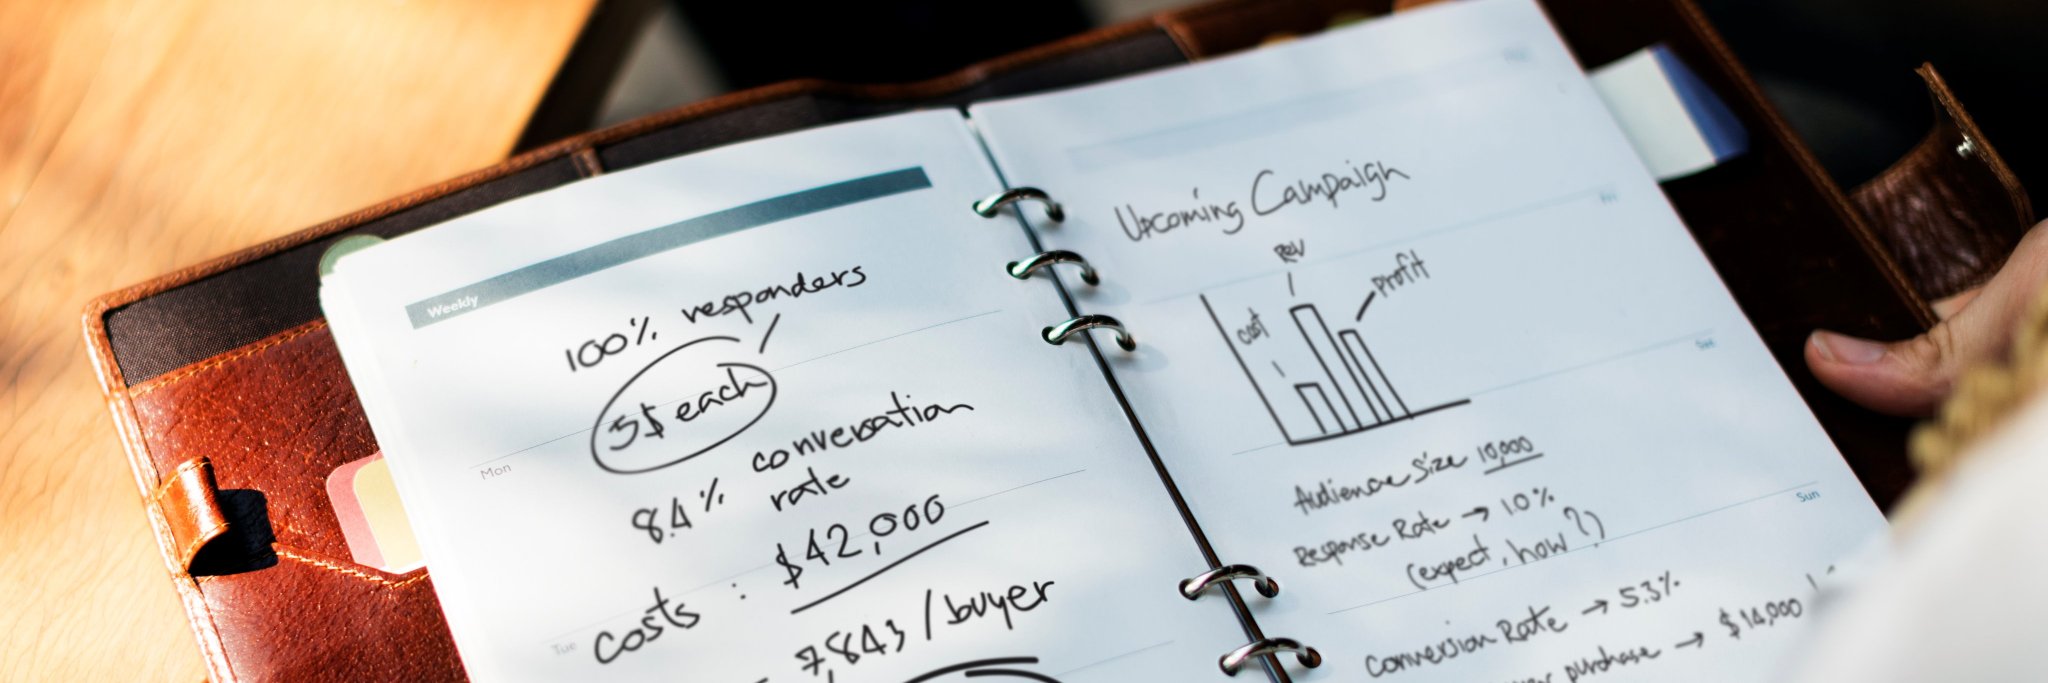 Weekly
100% responders
5$ each
Mon
8.4% conversation
rate
Tue
costs : $42,000
7,843 /buyer
Upcoming Campaign
Fri
REV
Profit
cost
Sat
Audience Size 10,000
Response Rate → 1.0%
(expect, how?)
Sun
Conversion Rate → 5.3%
purchase → $14,000